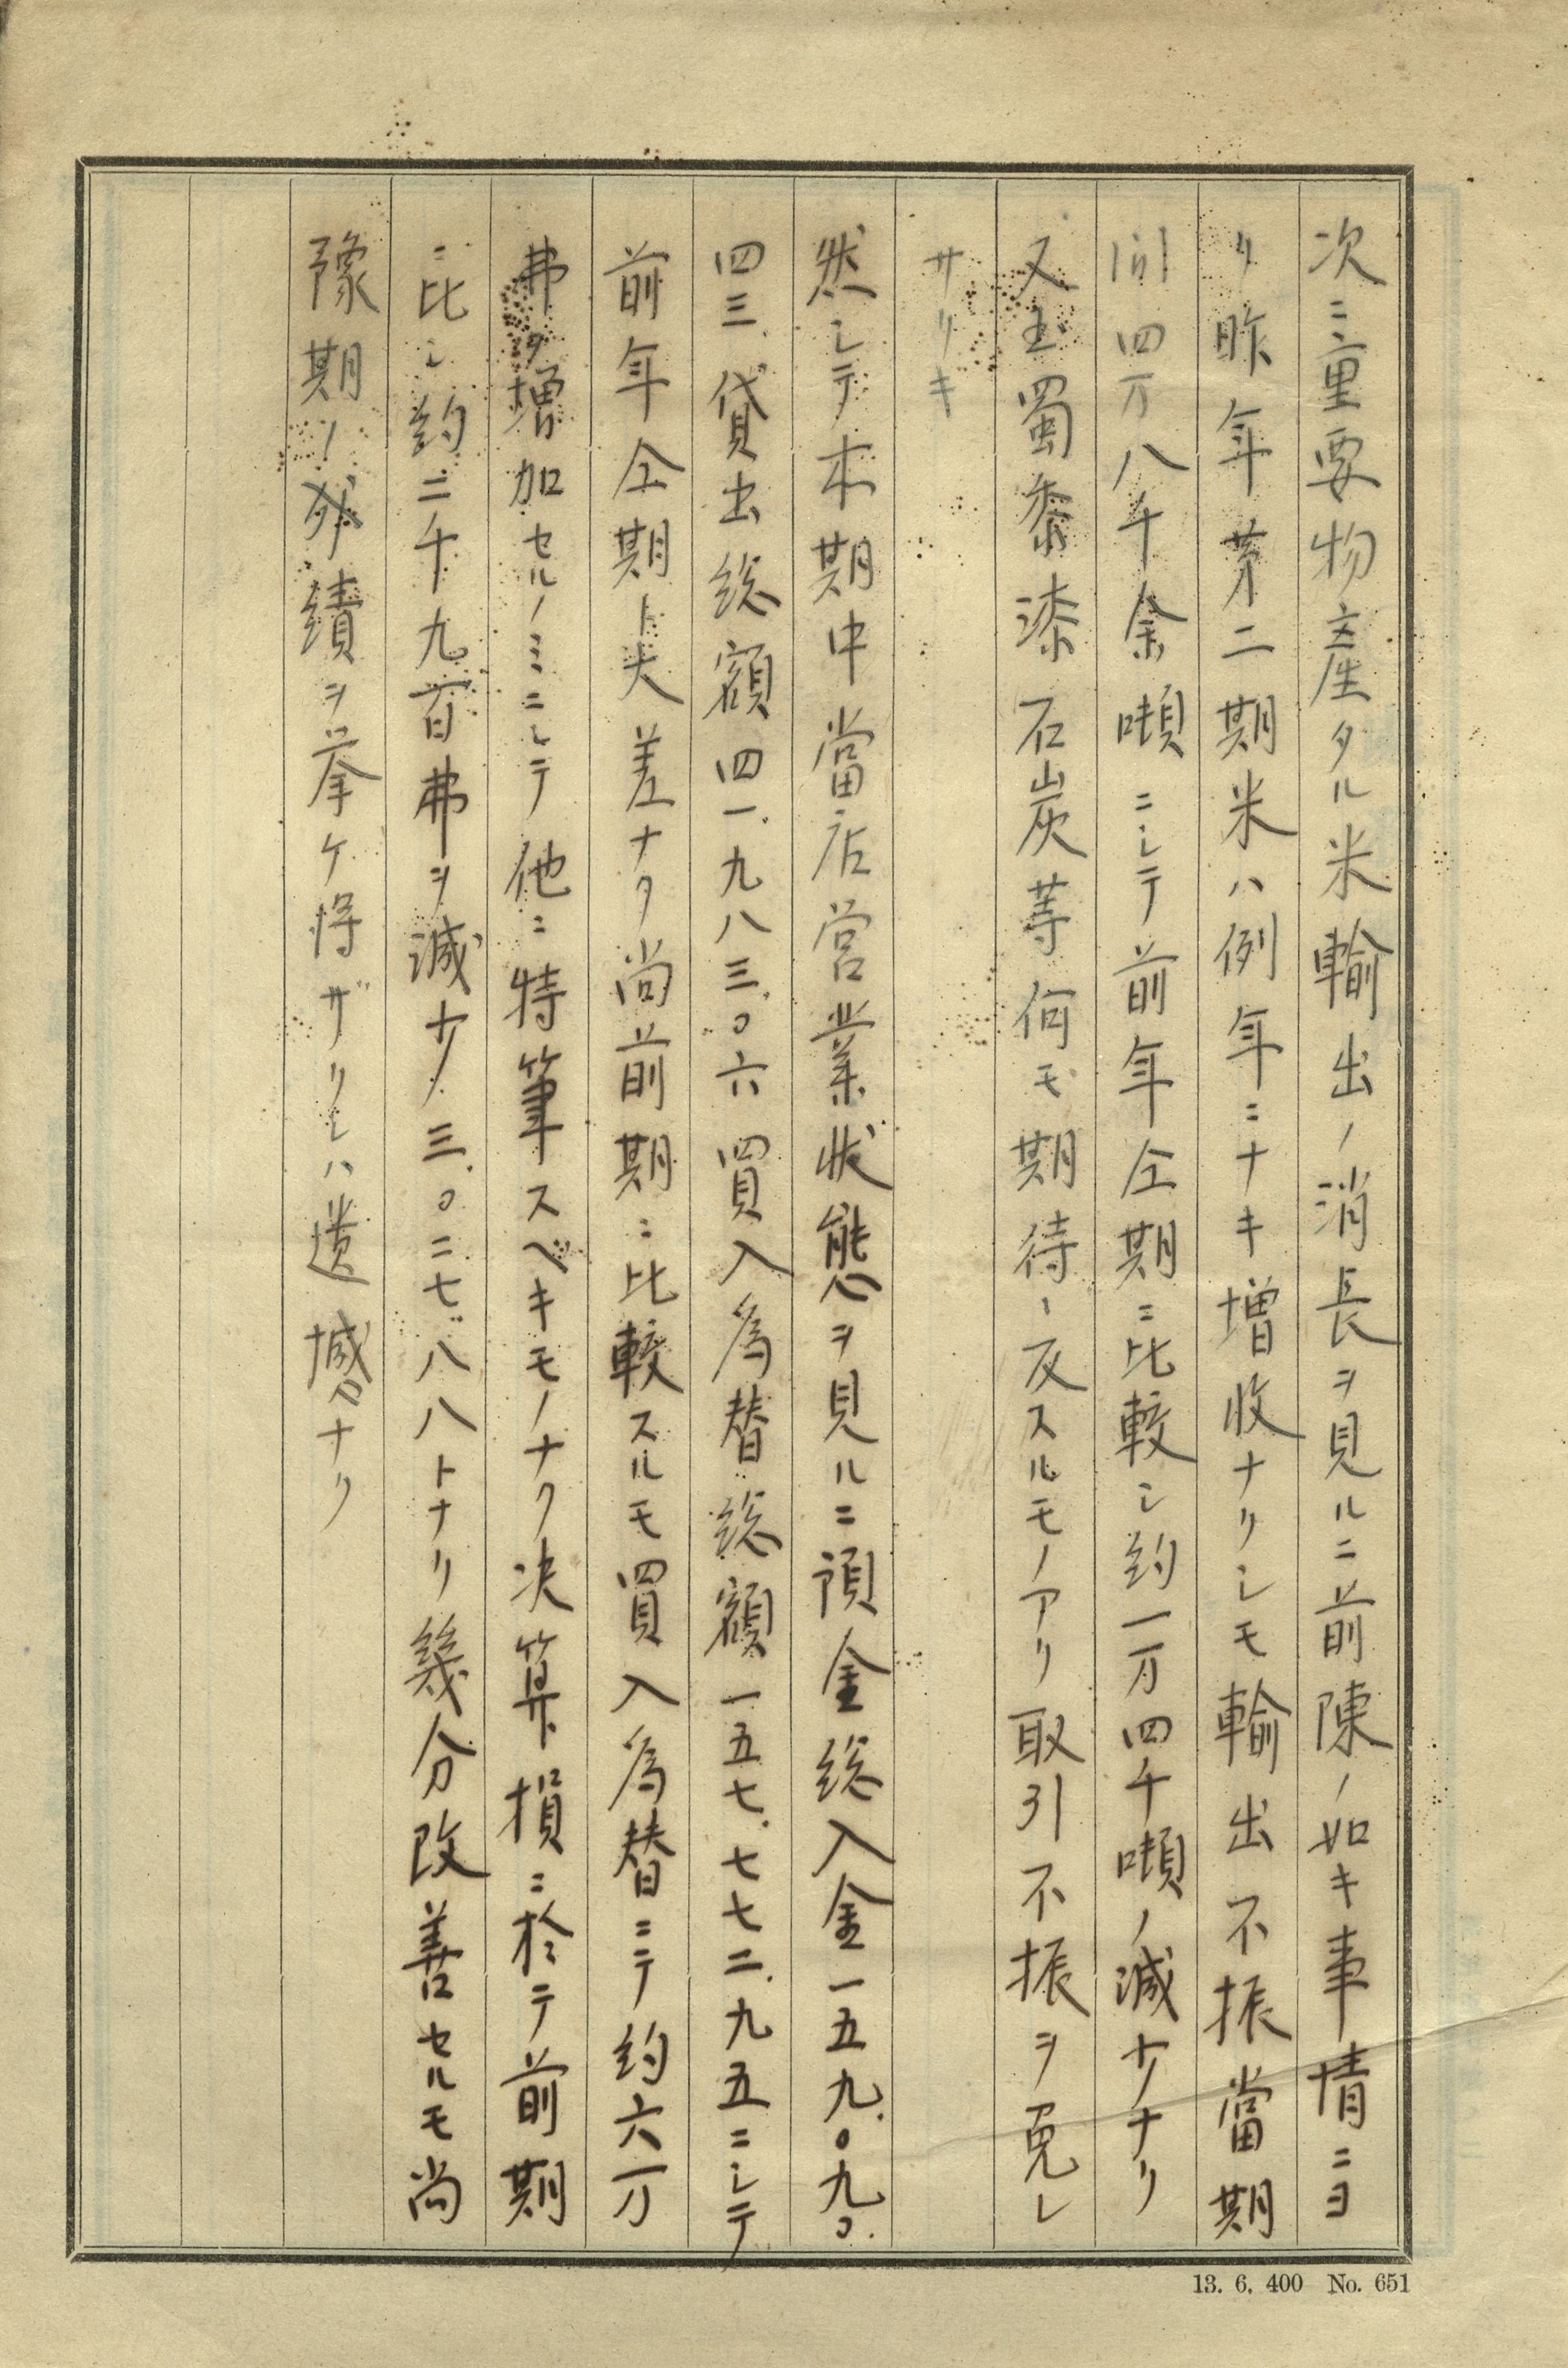 次ニ重要物産タル米輸出ノ消長ヲ見ルニ前陳ノ如キ事情ニヨ
リ昨年第二期米ハ例年ニナキ増收ナリシモ輸出不振當期
間四万八千余噸ニシテ前年仝期ニ比較シ約一万四千噸ノ減少ナリ
又玉蜀黍漆石炭等何モ期待ニ反スルモノアリ取引不振ヲ免レ
サリキ
然シテ本期中當店営業状態ヲ見ルニ預金総入金一五九.〇九〇.
四三、貸出総額四一.九八三.〇六買入為替総額一五七.七七二.九五ニシテ
前年仝期ト大差ナク尚前期ニ比較スルモ買入為替ニテ約六万
弗ヲ増加セルノミニシテ他ニ特筆スベキモノナク决算損ニ於テ前期
ニ比シ約二千九百弗ヲ減少三.〇二七.八八トナリ幾分改善セルモ尚
豫期ノ成績ヲ挙ケ得ザリシハ遺憾ナリ
13. 6. 400 No. 651